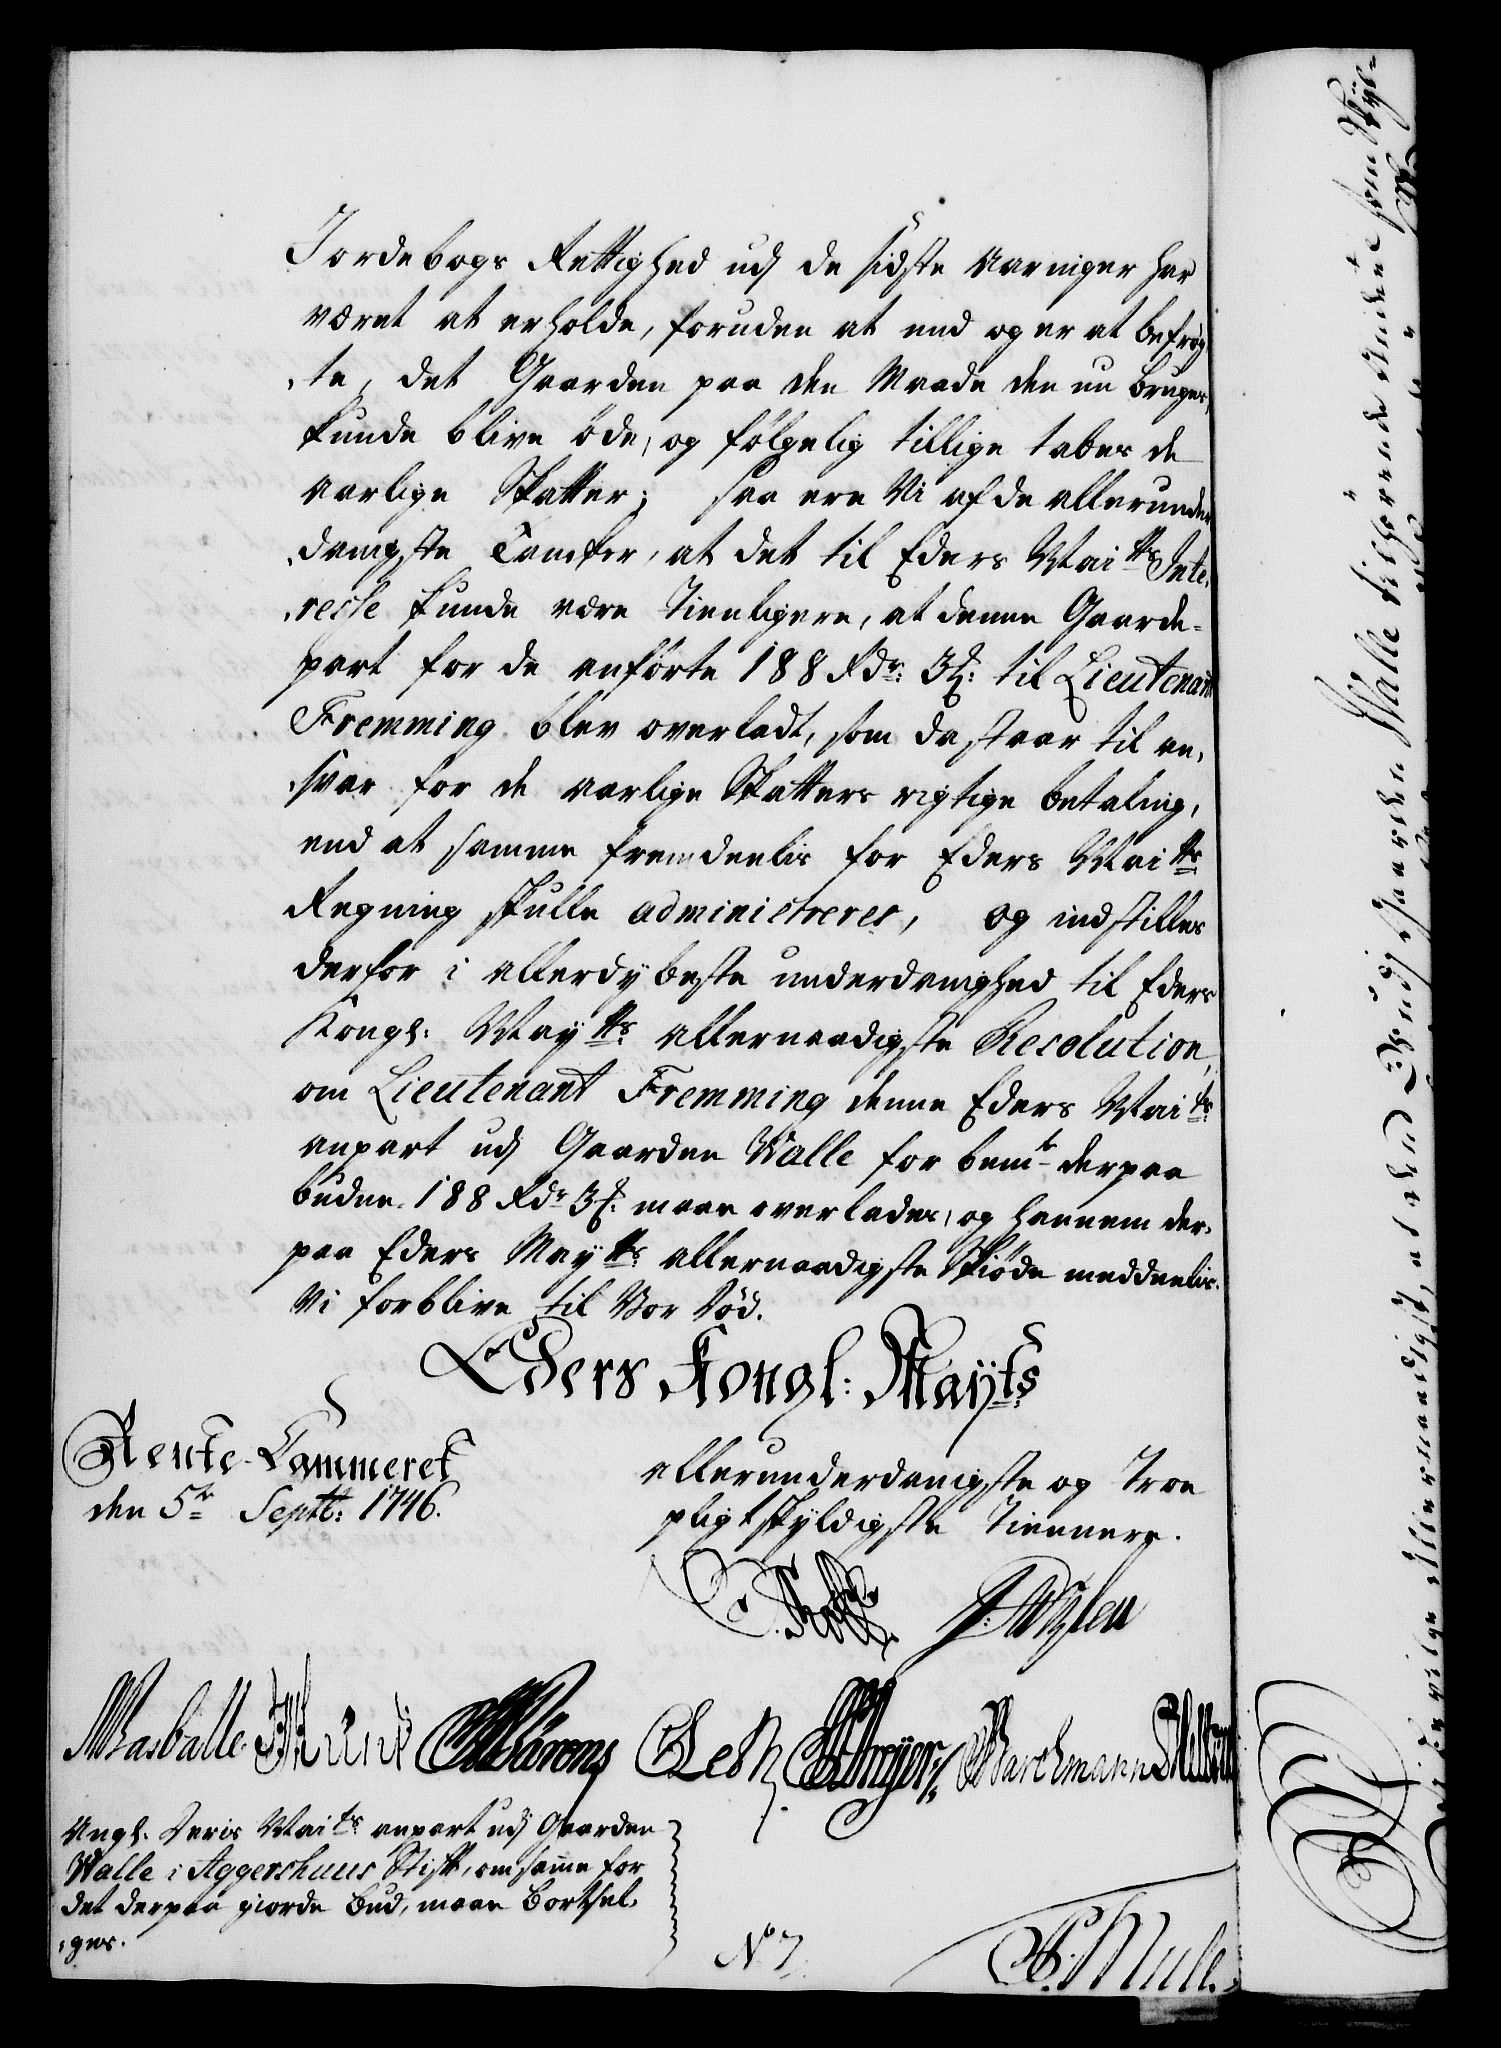 Jordebogs Rettighed udj de sidste Aaringer har
været at erholde, foruden at end og er at befrøg
,te, det Gaarden paa den Maade den nu bruges,
kunde blive öde, og fölgelig tillige tabes de
aarlige Skatter; saa ere Vi af de allerunder
,danigste Tancker, at det til Eders Maits Inte,
,resse kunde være tienligere, at denne Gaarde-
part for de anförte 188 Rdr: 3 ß: til Lieutenant
Fremming blev overladt, som da staar til an,
,svar for de aarlige Skatters rigtige betaling,
end at samme fremdeelis for Eders Maits
Regning skulle administreres, og indstilles
derfor i allerdybeste underdanighed til Eders
Kongl: Mayts allernaadigste Resolution,
om Lieutenant Fremming denne Eders Maits
anpart udj Gaarden Walle for bemte derpaa
budne 188 Rdr 3 ß: maae overlades, og hannem der,
paa Eders Mayts allernaadigste Skiöde meddeelis.
Vi forblive til Vor Död.
Eders Kongl: Mayts
Rente-Cammeret
den 5te Septb: 1746.
allerunderdanigste og Troe
pligtskyldigste Tiennere.
Rasballe
Barchmann
Angl. Deris Maits anpart udj Gaarden
Walle i Aggershuus Stift, om samme for
det derpaa giorde Bud, maae bortsæl,
,ges.
No 7